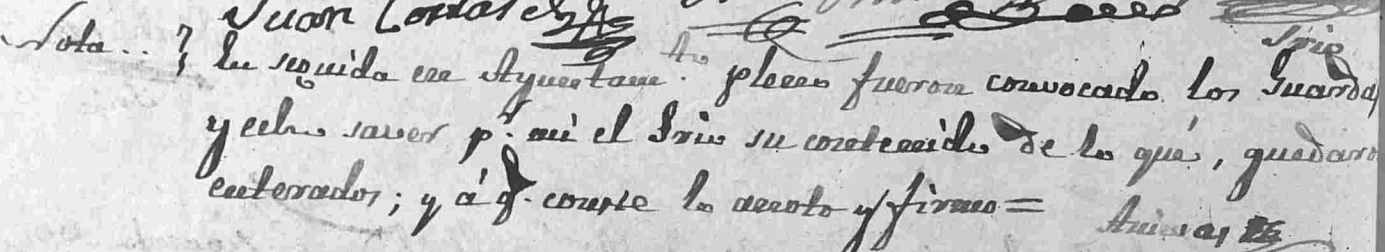 Juan Gonzalez
Srio
Nota .. } En seguida en Ayuntam.to pleno fueron convocado los Guardas
y echo saver p.r mi el Srio su contenido de lo que, quedaron
enterados; y á q. conste lo anoto y firmo =